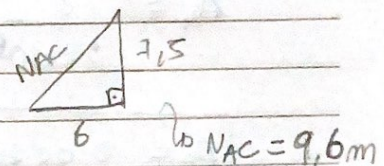 NAC
7,5
6
NAC = 9,6m